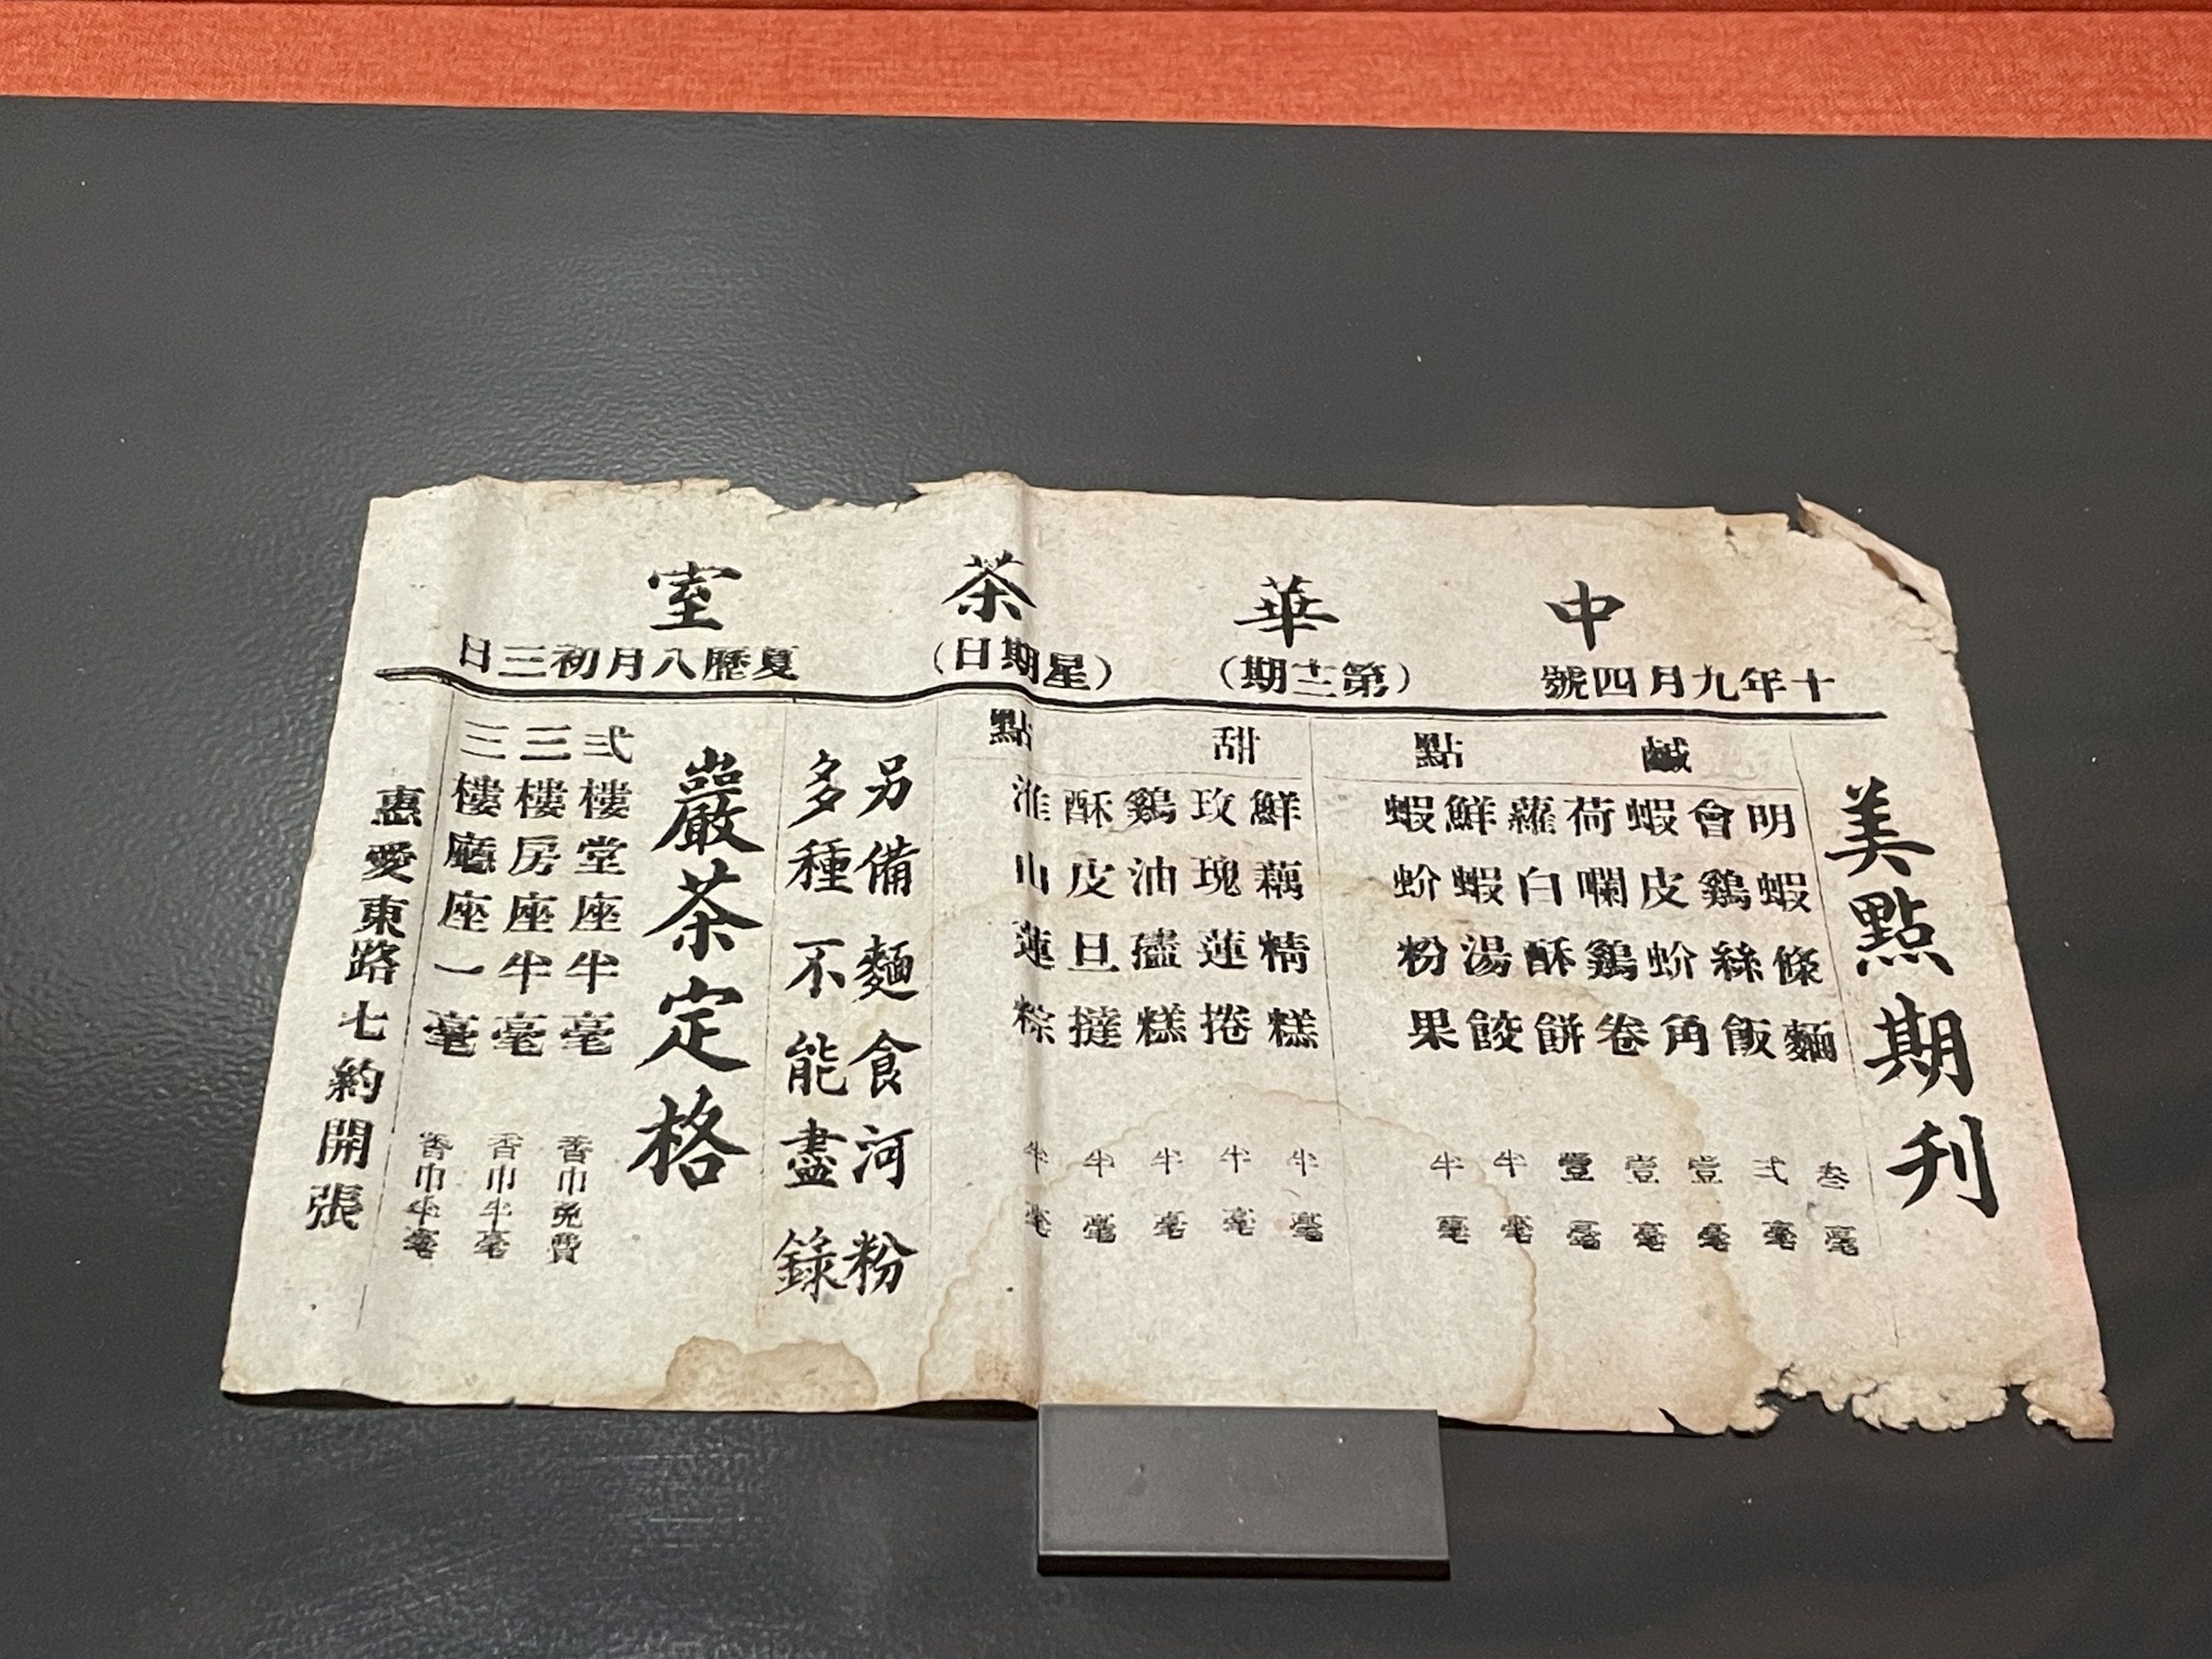 中華茶室
十年九月四號
(第三期)
(星期日)
夏歷八月初三日
美點期刊
鹹點
明蝦條麵 叁毫
會鷄絲飯 弍毫
蝦皮蚧角 壹毫
荷嚫鷄卷 壹毫
蘿白酥餅 壹毫
鮮蝦湯餃 半毫
蝦蚧粉果 半毫
甜點
鮮藕精糕 半毫
玫瑰蓮捲 半毫
鷄油盞糕 半毫
酥皮旦撻 半毫
淮山蓮粽 半毫
另備麵食河粉
多種不能盡錄
嚴茶定格
弍樓堂座半毫 香巾免費
三樓房座半毫 香巾半毫
三樓廳座一毫 香巾半毫
惠愛東路七約開張